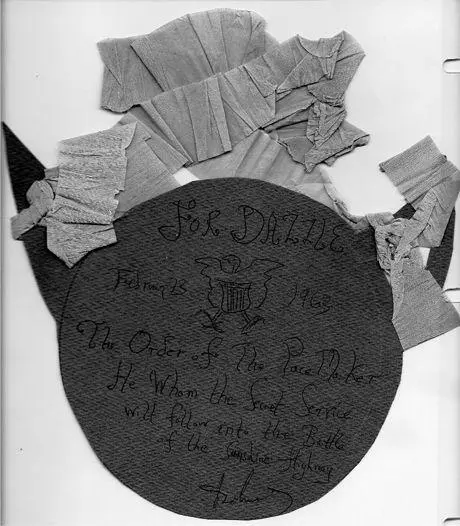 FOR DAZZLE
February 23 1963
The Order of The Pace Maker
He Whom the Secret Service
will follow into the Battle
of the Sunshine Highway